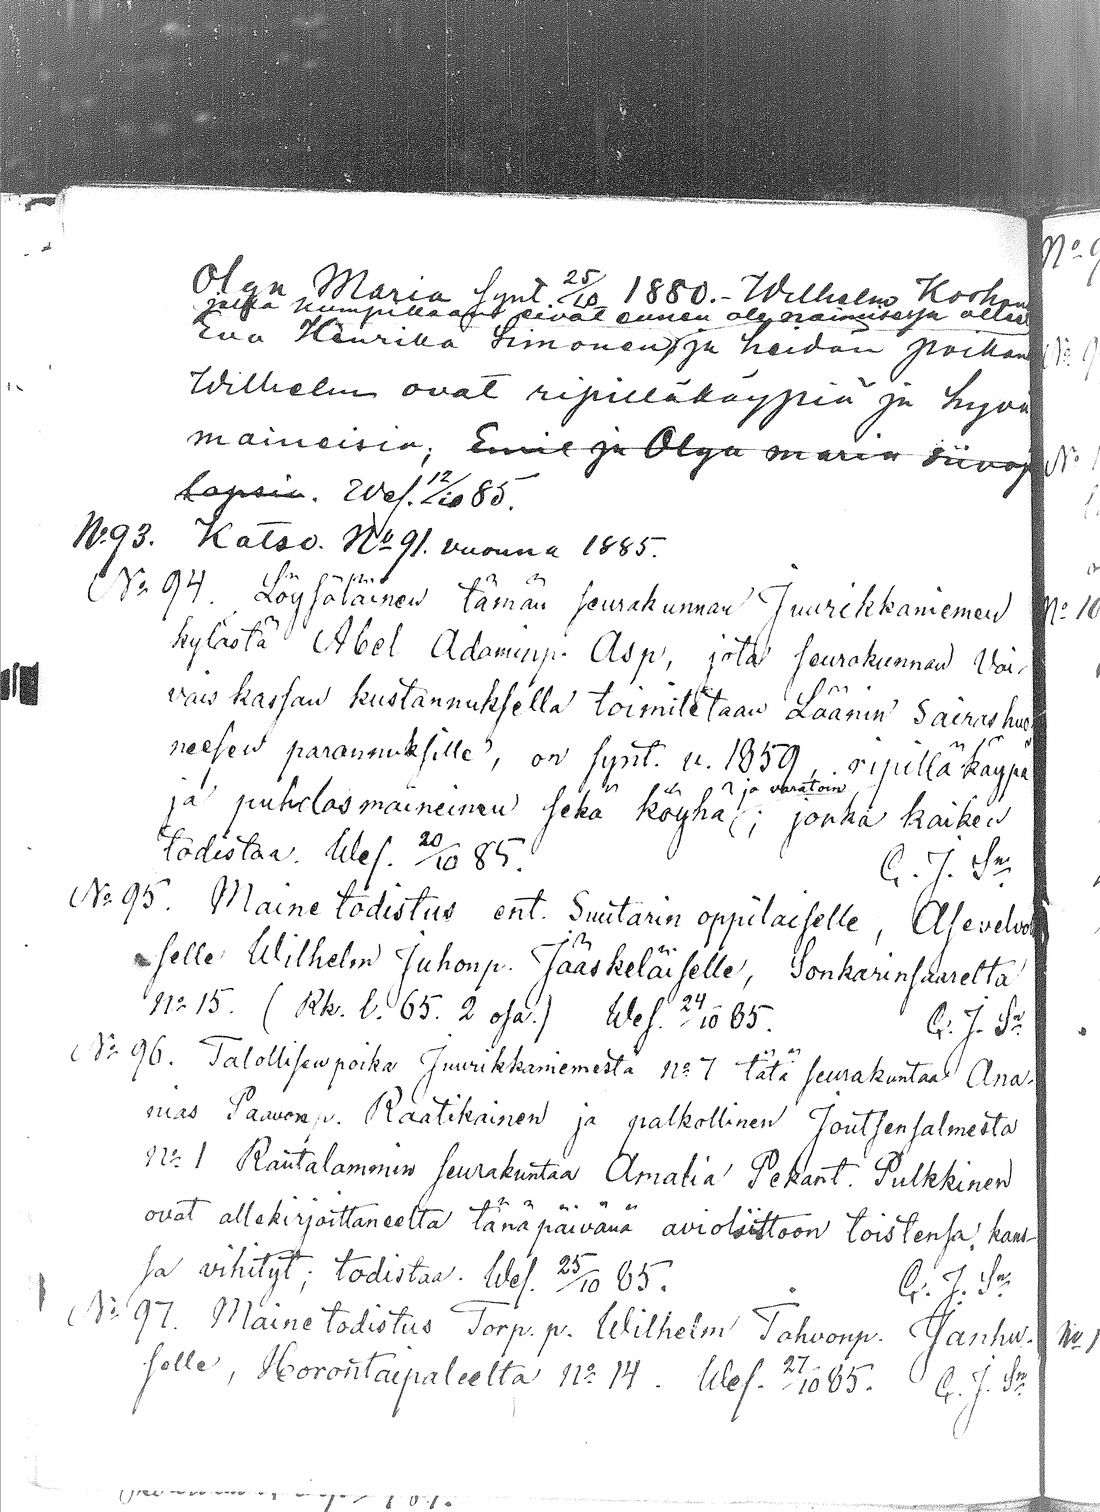 Olga Maria synt. 25/10 1880. - Wilhelm Korho
jotka kumpikaan eivät ennen ole naimisessa olleet
Eva Henrika Simonen, ja heidän poikan
Wilhelm ovat ripilläkäypiä ja hyvä
maineisia; Emil ja Olga maria siivoj
lapsia. Wes. 12/10 85.
No 93. Katso. No 91. vuonna 1885.
No 94. Löysäläinen tämän seurakunnan Juurikkaniemen
kylästä Abel Adaminp. Asp, jota seurakunnan Vai-
vais kassan kustannuksella toimitetaan Läänin Sairashuo
neesen parannuksille, on synt. v. 1859, ripillä käypä
ja puhdasmaineinen sekä köyhä ja varatoin; jonka kaiken
todistaa. Wes. 20/10 85. C. J. Sn.
No 95. Maine todistus ent. Suutarin oppilaiselle, Asevelvol
selle Wilhelm Juhonp. Jääskeläiselle, Sonkarinsaarelta
no 15. (Rk. l. 65. 2 osa.) Wes. 24/10 85. C. J. Sn
No 96. Talollisen poika Juurikkaniemestä no 7 tätä seurakuntaa Ana-
nias Paavonp. Raatikainen ja palkollinen Joutsensalmesta
no 1 Rautalammin seurakuntaa Amalia Pekant. Pulkkinen
ovat allekirjoittaneelta tänäpäivänä avioliittoon toistensa kans-
sa vihityt; todistaa. Wes. 25/10 85. C. J. Sn.
No 97. Maine todistus Torp. p. Wilhelm Tahvonp. Janhu-
selle, Horontaipaleelta no 14. Wes. 27/10 85. C. J. Sn